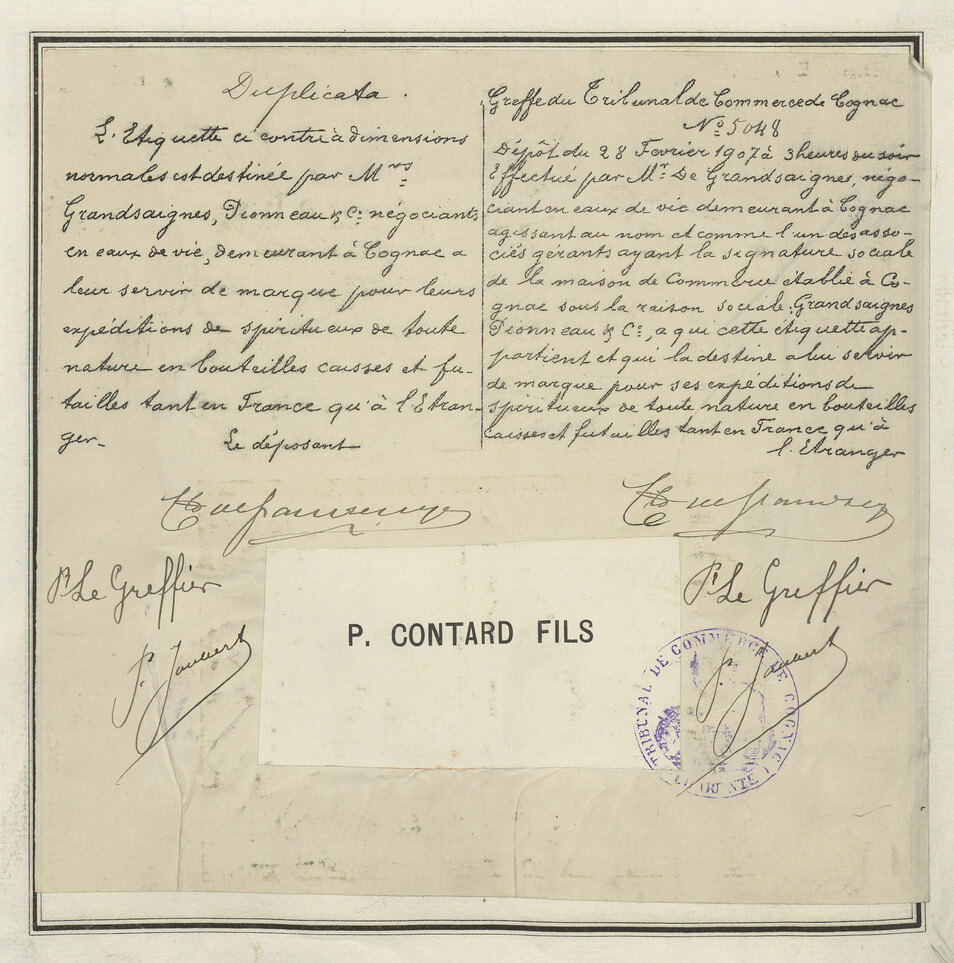 Duplicata.
L'Etiquette ci contre à dimensions
normales est destinée par Mrs
Grandsaignes, Pionneau & Cie négociants
en eaux de vie, demeurant à Cognac a
leur servir de marque pour leurs
expéditions de spiritueux de toute
nature en bouteilles caisses et fu-
tailles tant en France qu'à l'Etran-
ger-
Le déposant
Greffe du Tribunal de Commerce de Cognac
No 5048
Dépôt du 28 Fevrier 1907 à 3 heures du soir
Effectué par Mr De Grandsaignes, négo-
ciant en eaux de vie demeurant à Cognac
agissant au nom et comme l'un des asso-
ciés gérants ayant la signature sociale
de la maison de Commerce établie à Co-
gnac sous la raison sociale: Grandsaignes
Pionneau & Cie, a qui cette étiquette ap-
partient et qui la destine a lui servir
de marque pour ses expéditions de
spiritueux de toute nature en bouteilles
caisses et futailles tant en France qu'à
l'Etranger
Pr Le Greffier
P. Joubert
Pr Le Greffier
P. Joubert
P. CONTARD FILS
TRIBUNAL DE COMMERCE DE COGNAC